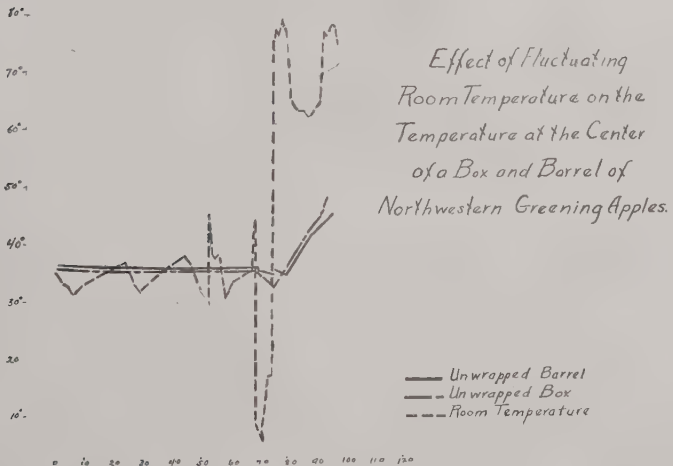 80°
70°
60°
50°
40°
30°
20
10°
Effect of Fluctuating
Room Temperature on the
Temperature at the Center
of a Box and Barrel of
Northwestern Greening Apples.
Unwrapped Barrel
Unwrapped Box
Room Temperature
0 10 20 30 40 50 60 70 80 90 100 110 120